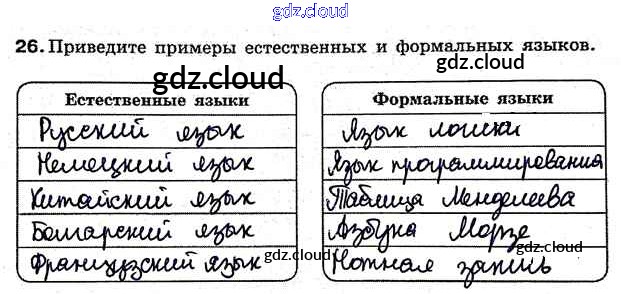 gdz.cloud
26. Приведите примеры естественных и формальных языков.
gdz.cloud
gdz.cloud
Естественные языки
Формальные языки
Русский язык
Язык логики
Немецкий язык
Язык программирования
Китайский язык
Таблица Менделеева
Болгарский язык
Азбука Морзе
gdz.cloud
gdz.cloud
Французский язык
Нотная запись